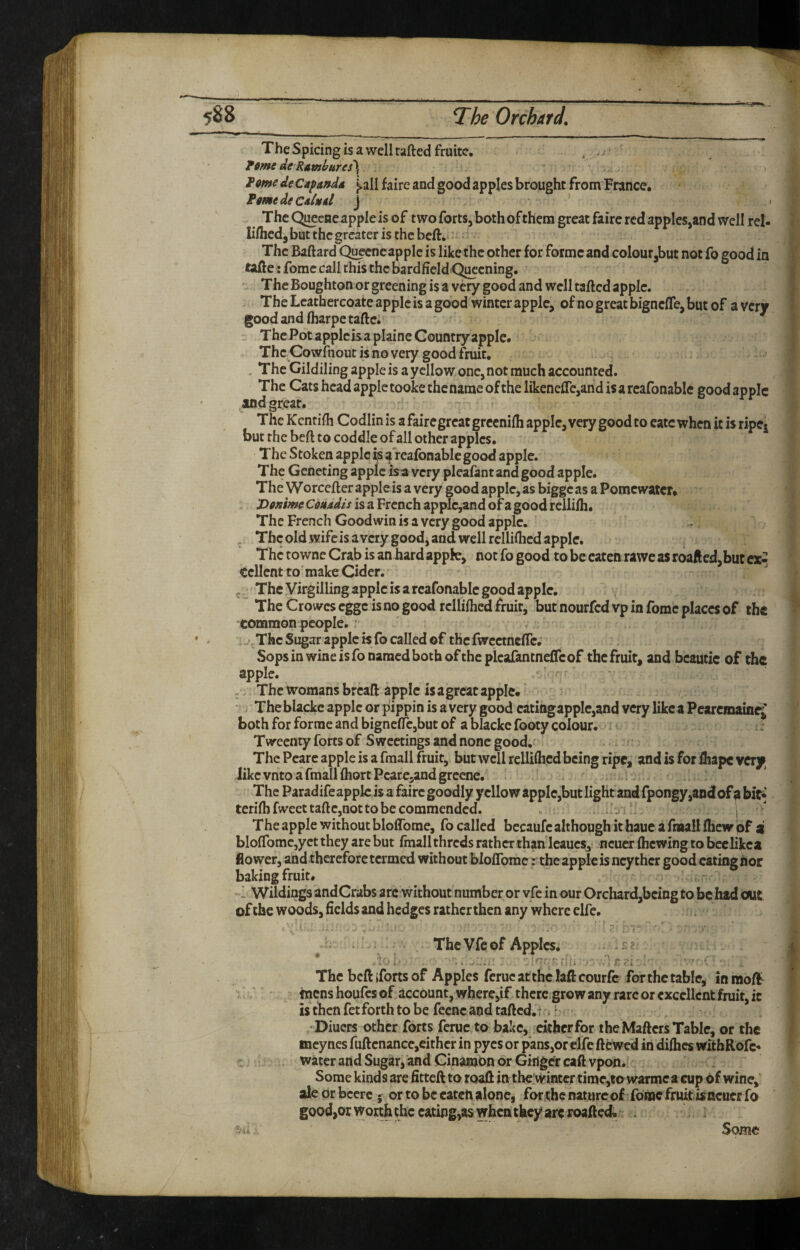 588 The Orchard.
The Spicing is a well tasted fruite.
Pome de Rambures }
Pome de Capanda } all faire and good apples brought from France.
Pome de Calual }
The Queene apple is of two ſorts, both of them great faire red apples, and well rel-
liſhed, but the greater is the beſt.
The Baſtard Queene apple is like the other for forme and colour, but not ſo good in
taſte: ſome call this the bardfield Queening.
The Boughton or greening is a very good and well taſted apple.
The Leathercoate apple is a good winter apple, of no great bigneſſe, but of a very
good and ſharpe taſte.
The Pot apple is a plaine Country apple.
The Cowſnout is no very good fruit.
The Gildiling apple is a yellow one, not much accounted.
The Cats head apple tooke the name of the likeneſſe, and is a reaſonable good apple
and great.
The Kentiſh Codlin is a faire great greeniſh apple, very good to eate when it is ripe;
but the beſt to coddle of all other apples.
The Stoken apple is a reaſonable good apple.
The Geneting apple is a very pleaſant and good apple.
The Worceſter apple is a very good apple, as bigge as a Pomewater.
Donime Couadis is a French apple, and of a good relliſh.
The French Goodwin is a very good apple.
The old wife is a very good, and well relliſhed apple.
The towne Crab is an hard apple, not ſo good to be eaten rawe as roaſted, but ex-
cellent to make Cider.
The Virgilling apple is a reaſonable good apple.
The Crowes egge is no good relliſhed fruit, but nourſed vp in ſome places of the
common people.
The Sugar apple is ſo called of the ſweetneſſe.
Sops in wine is ſo named both of the pleaſantneſſe of the fruit, and beautie of the
apple.
The womans breaſt apple is a great apple.
The blacke apple or pippin is a very good eating apple, and very like a Pearemaine,
both for forme and bigneſſe, but of a blacke ſooty colour.
Tweenty ſorts of Sweetings and none good.
The Peare apple is a ſmall fruit, but well relliſhed being ripe, and is for ſhape very
like vnto a ſmall ſhort Peare, and greene.
The Paradiſe apple is a faire goodly yellow apple, but light and ſpongy, and of a bit-
teriſh ſweet taſte, not to be commended.
The apple without bloſſome, ſo called becauſe although it haue a ſmall ſhew of a
bloſſome, yet they are but ſmall threds rather than leaues, neuer ſhewing to bee like a
flower, and therefore termed without bloſſome: the apple is neyther good eating nor
baking fruit.
Wildings and Crabs are without number or vſe in our Orchard, being to be had out
of the woods, fields and hedges rather then any where elſe.
The Vſe of Apples.
The beſt ſorts of Apples ſerue at the laſt courſe for the table, in moſt
mens houſes of account, where, if there grow any rare or excellent fruit, it
is then ſet forth to be ſeene and taſted.
Diuers other ſorts ſerue to bake, either for the Maſters Table, or the
meynes ſuſtenance, either in pyes or pans, or elſe ſtewed in diſhes with Roſe-
water and Sugar, and Cinamon or Ginger caſt vpon.
Some kinds are fitteſt to roaſt in the winter time, to warme a cup of wine,
ale or beere; or to be eaten alone, for the nature of ſome fruit is neuer ſo
good, or worth the eating, as when they are roaſted.
Some